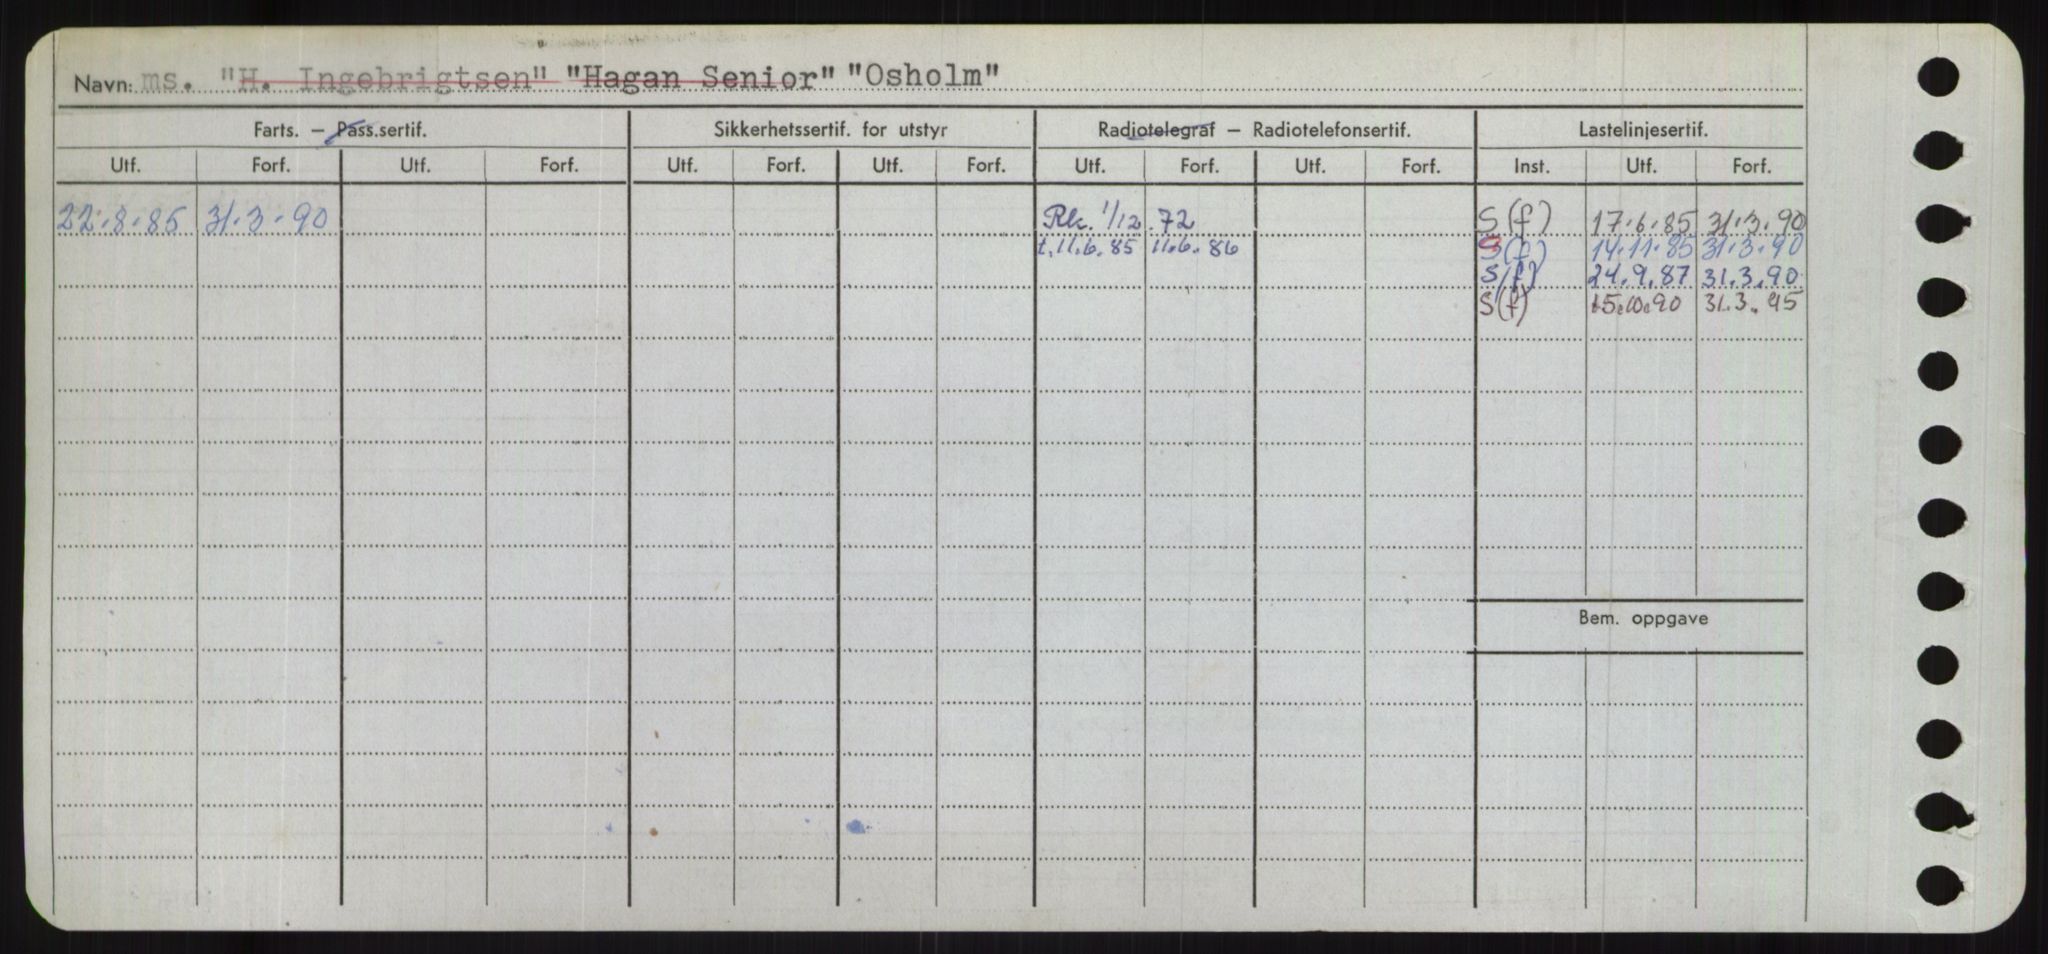 Navn: ms. "H. Ingebrigtsen" "Hagan Senior" "Osholm"
Farts. — Pass.sertif. Sikkerhetssertif. for utstyr Radiotelegraf — Radiotelefonsertif. Lastelinjesertif.
Utf. Forf. Utf. Forf. Utf. Forf. Utf. Forf. Utf. Forf. Utf. Forf. Inst. Utf. Forf.
22.8.85 31.3.90 Rk. 1/12.72 S(f) 17.6.85 31.3.90
t.11.6.85 11.6.86 S(f) 14.11.85 31.3.90
S(f) 24.9.87 31.3.90
S(f) 15.10.90 31.3.95
Bem. oppgave